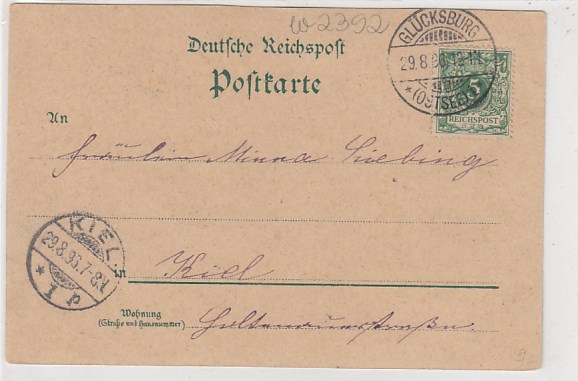 W2392
GLÜCKSBURG
29.8.96.
* (OSTSEE) *
5
REICHSPOST
Deutsche Reichspost
Postkarte
An
Fräulein Minna Siebing
KIEL
29.8.96.7-8N.
* 1 p
in
Kiel
Wohnung
(Straße und Hausnummer)
Holtenauerstraße.